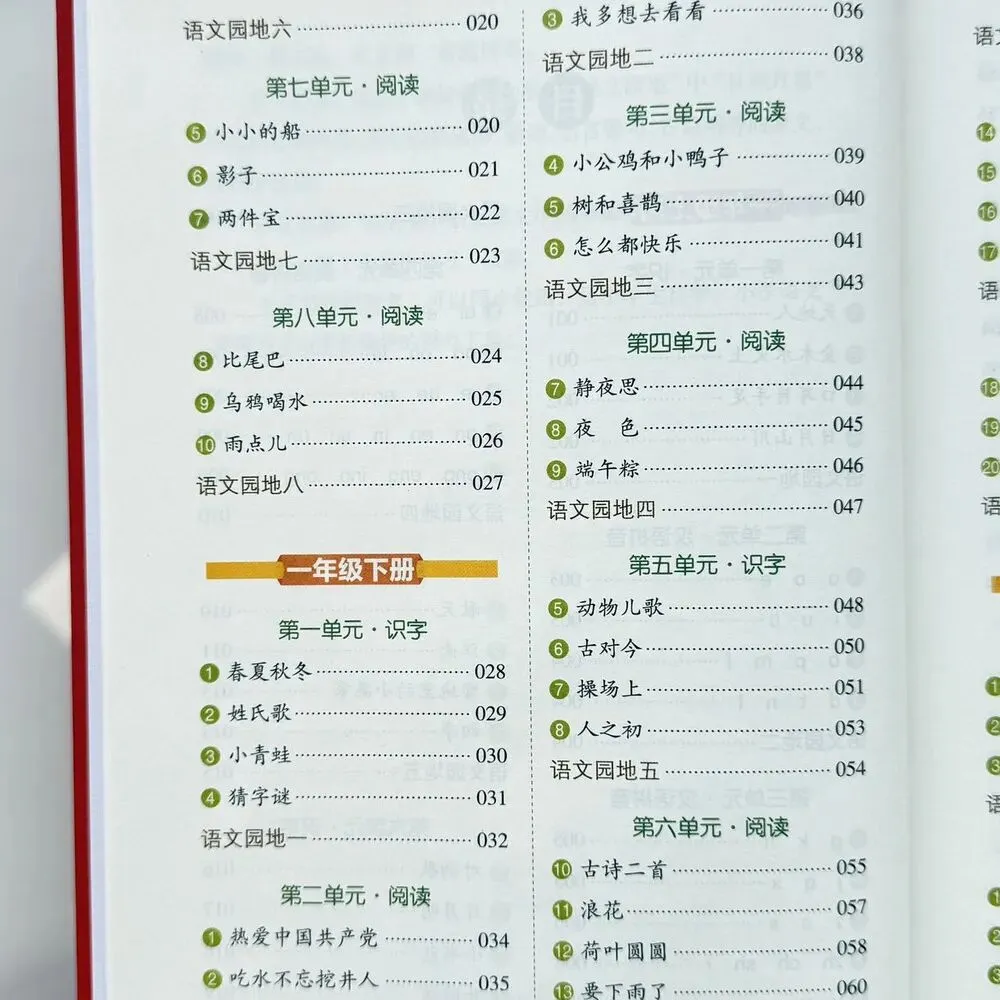 语文园地六 020
第七单元·阅读
5 小小的船 020
6 影子 021
7 两件宝 022
语文园地七 023
第八单元·阅读
8 比尾巴 024
9 乌鸦喝水 025
10 雨点儿 026
语文园地八 027
一年级下册
第一单元·识字
1 春夏秋冬 028
2 姓氏歌 029
3 小青蛙 030
4 猜字谜 031
语文园地一 032
第二单元·阅读
1 热爱中国共产党 034
2 吃水不忘挖井人 035
3 我多想去看看 036
语文园地二 038
第三单元·阅读
4 小公鸡和小鸭子 039
5 树和喜鹊 040
6 怎么都快乐 041
语文园地三 043
第四单元·阅读
7 静夜思 044
8 夜 色 045
9 端午粽 046
语文园地四 047
第五单元·识字
5 动物儿歌 048
6 古对今 050
7 操场上 051
8 人之初 053
语文园地五 054
第六单元·阅读
10 古诗二首 055
11 浪花 057
12 荷叶圆圆 058
13 要下雨了 060
语文
14
15
16
17
18
19
20